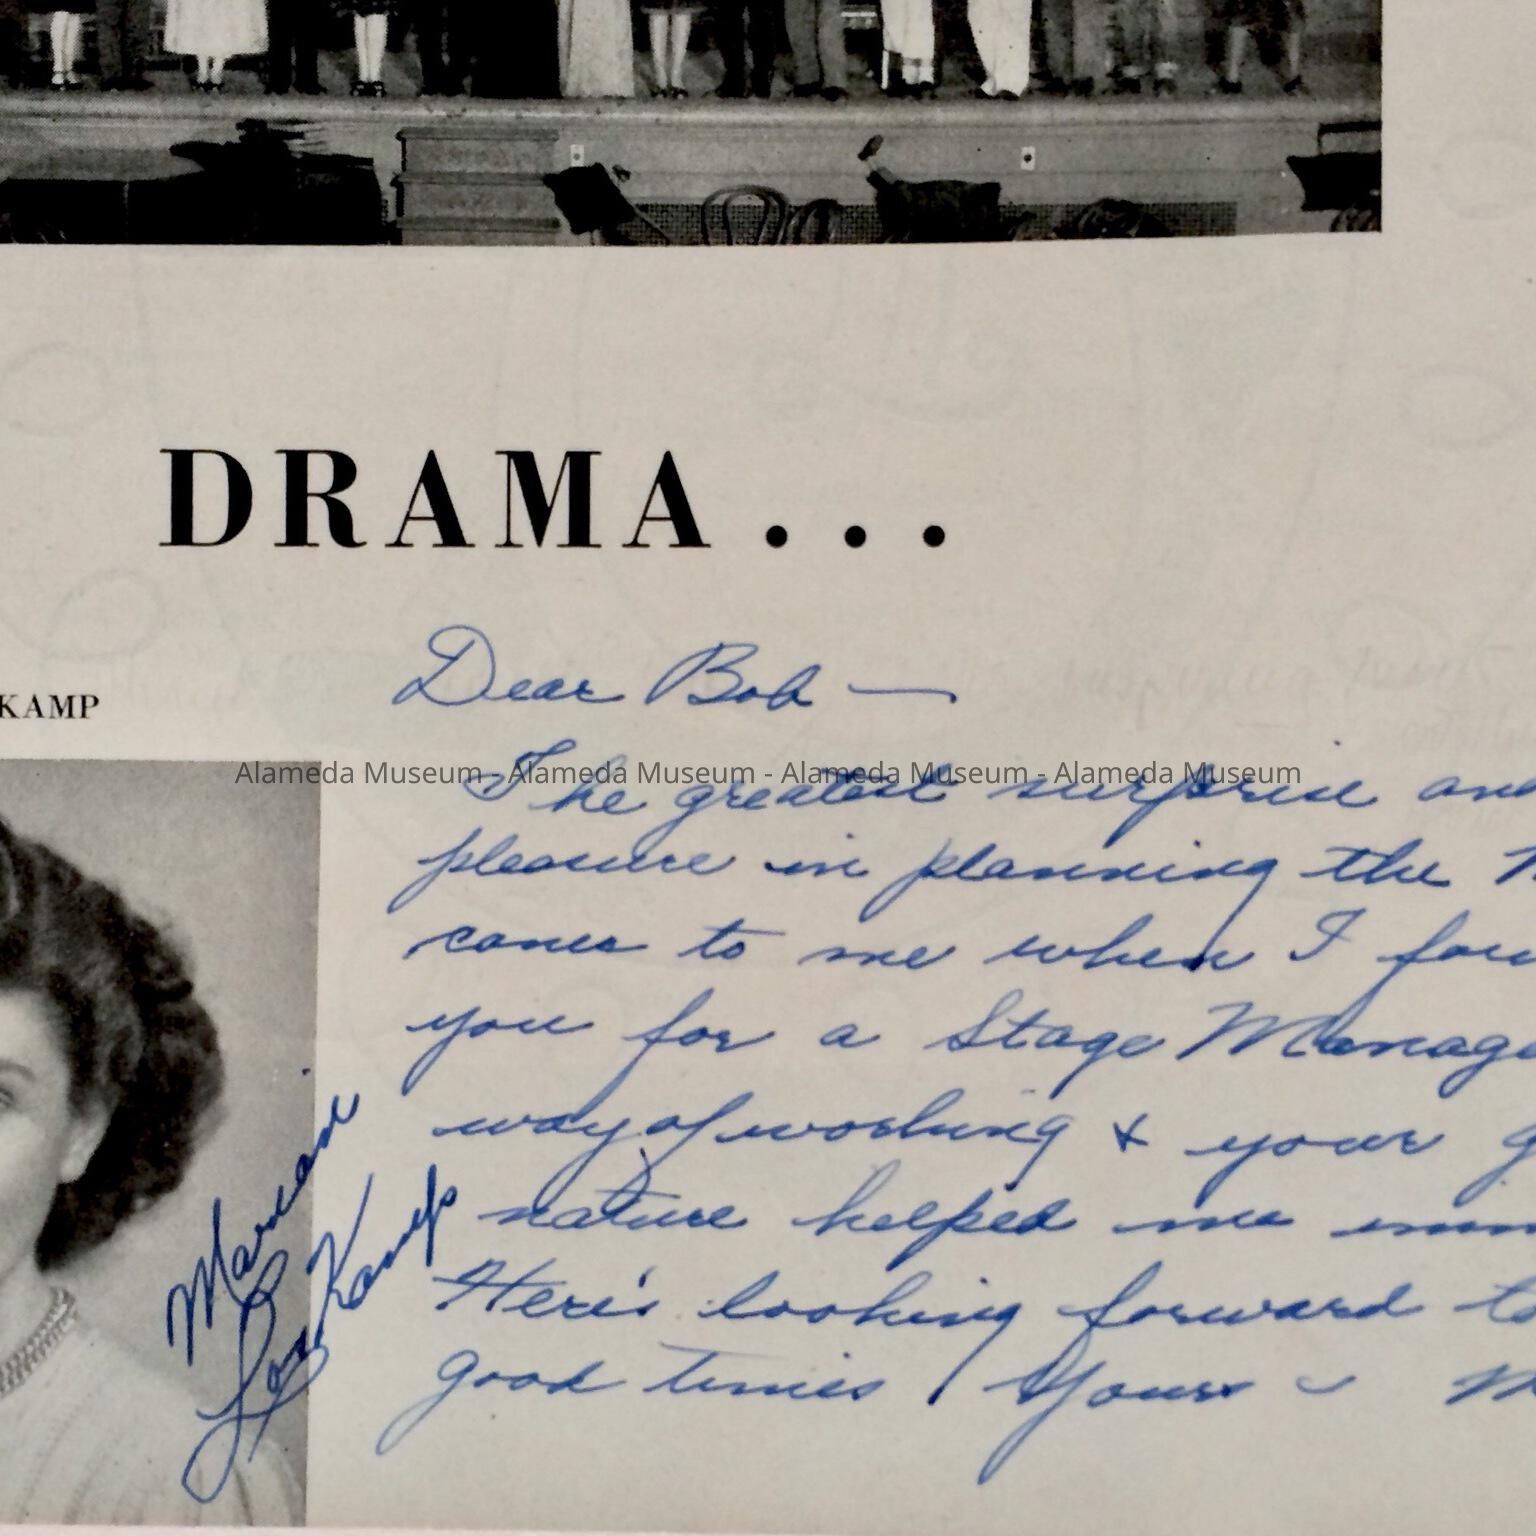 DRAMA...
KAMP
Dear Bob —
Alameda Museum - Alameda Museum - Alameda Museum - Alameda Museum
The greatest surprise and
pleasure in planning the
comes to me when I
you for a Stage
way of working & your
nature helped me
Here's looking forward to
good times! Yours -
Marian
Kamp